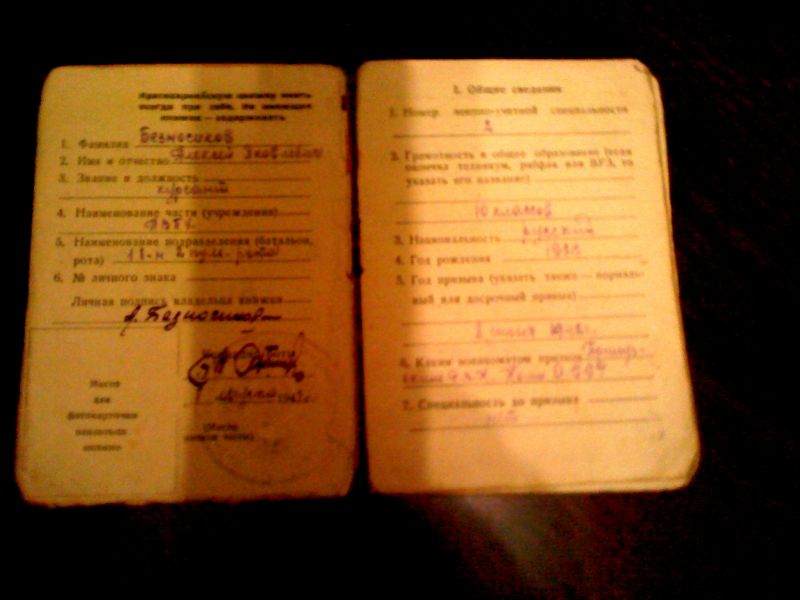 Красноармейскую книжку иметь
всегда при себе. Не имеющих
книжек — задерживать
1. Фамилия Безносиков
2. Имя и отчество Алексей Яковлевич
3. Звание и должность
курсант
4. Наименование части (учреждения)
5. Наименование подразделения (батальон,
рота)
6. № личного знака
Личная подпись владельца книжки
А. Безносиков
Место
для
фотокарточки
владельца
книжки
(Место
печати части)
I. Общие сведения
1. Номер военно-учетной специальности
2
2. Грамотность и общее образование (если
окончил техникум, рабфак или ВУЗ, то
указать его название)
10 классов
3. Национальность русский
4. Год рождения
5. Год призыва (указать также — нормаль-
ный или досрочный призыв)
6. Каким военкоматом призван
7. Специальность до призыва
нет